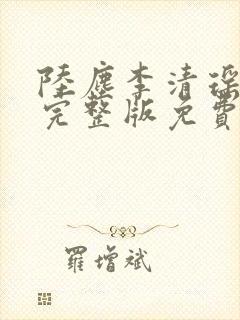 陸塵李清瑤
完整版免費
羅增斌